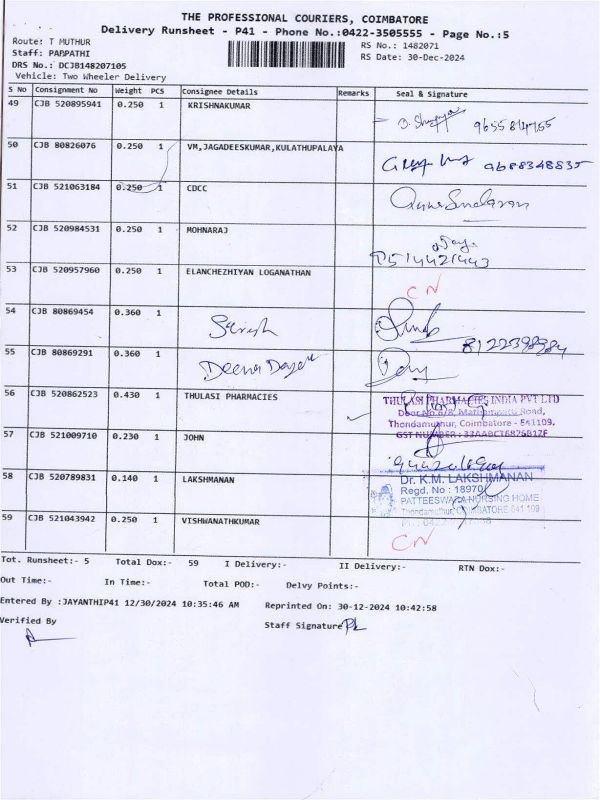 THE PROFESSIONAL COURIERS, COIMBATORE
Delivery Runsheet - P41 - Phone No.:0422-3505555 - Page No.:5
Route: T MUTHUR
RS No.: 1482071
Staff: PAPPATHI
RS Date: 30-Dec-2024
DRS No.: DCJB148207105
Vehicle: Two Wheeler Delivery
S No Consignment No Weight PCS Consignee Details Remarks Seal & Signature
49 CJB 520895941 0.250 1 KRISHNAKUMAR
50 CJB 80826076 0.250 1 VM,JAGADEESKUMAR,KULATHUPALAYA
9688348835
51 CJB 521063184 0.250 1 CDCC
52 CJB 520984531 0.250 1 MOHNARAJ
53 CJB 520957960 0.250 1 ELANCHEZHIYAN LOGANATHAN
CN
54 CJB 80869454 0.360 1 Suresh
8122398984
55 CJB 80869291 0.360 1 Deena Dayal
56 CJB 520862523 0.430 1 THULASI PHARMACIES
THULASI PHARMACIES INDIA PVT LTD
Door No.6/8, Road,
Thondamuthur, Coimbatore - 641109.
GST NUMBER : 33AABCT6826B1ZF
57 CJB 521009710 0.230 1 JOHN
58 CJB 520789831 0.140 1 LAKSHMANAN
Dr. K.M. LAKSHMANAN
Regd, No : 18970
PATTEESWARA NURSING HOME
Thondamuthur, COIMBATORE 641 109
59 CJB 521043942 0.250 1 VISHWANATHKUMAR
CN
Tot. Runsheet:- 5 Total Dox:- 59 I Delivery:- II Delivery:- RTN Dox:-
Out Time:- In Time:- Total POD:- Delvy Points:-
Entered By :JAYANTHIP41 12/30/2024 10:35:46 AM Reprinted On: 30-12-2024 10:42:58
Verified By
Staff Signature